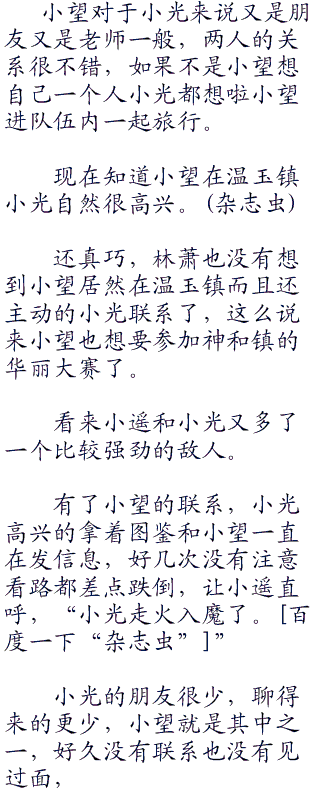 小望对于小光来说又是朋
友又是老师一般，两人的关
系很不错，如果不是小望想
自己一个人小光都想啦小望
进队伍内一起旅行。
现在知道小望在温玉镇
小光自然很高兴。(杂志虫)
还真巧，林萧也没有想
到小望居然在温玉镇而且还
主动的小光联系了，这么说
来小望也想要参加神和镇的
华丽大赛了。
看来小遥和小光又多了
一个比较强劲的敌人。
有了小望的联系，小光
高兴的拿着图鉴和小望一直
在发信息，好几次没有注意
看路都差点跌倒，让小遥直
呼，“小光走火入魔了。[百
度一下“杂志虫”]”
小光的朋友很少，聊得
来的更少，小望就是其中之
一，好久没有联系也没有见
过面，